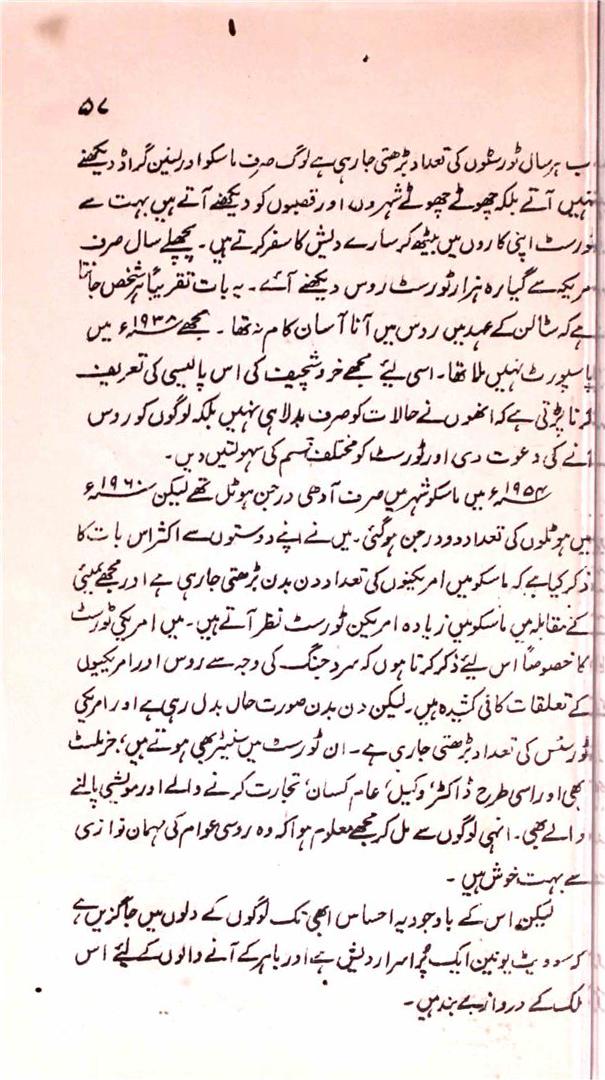 ۱
۵۷
ب ہر سال ٹورسٹوں کی تعداد بڑھتی جا رہی ہے لوگ صرف ماسکو اور لینن گراڈ دیکھنے
نہیں آتے بلکہ چھوٹے چھوٹے شہروں اور قصبوں کو دیکھنے آتے ہیں بہت سے
ٹورسٹ اپنی کاروں میں بیٹھ کر سارے دیش کا سفر کرتے ہیں۔ پچھلے سال صرف
مریکہ سے گیارہ ہزار ٹورسٹ روس دیکھنے آئے۔ یہ بات تقریباً ہر شخص جانتا
ہے کہ سٹالن کے عہد میں روس میں آنا آسان کام نہ تھا۔ مجھے ۱۹۳۸ء میں
پاسپورٹ نہیں ملا تھا۔ اسی لیئے مجھے خروشچیف کی اس پالیسی کی تعریف
کرنا پڑتی ہے کہ انھوں نے حالات کو صرف بدلا ہی نہیں بلکہ لوگوں کو روس
آنے کی دعوت دی اور ٹورسٹ کو مختلف قسم کی سہولتیں دیں۔
۱۹۵۴ء میں ماسکو شہر میں صرف آدھی درجن ہوٹل تھے لیکن ۱۹۶۰ء
میں ہوٹلوں کی تعداد دو درجن ہو گئی۔ میں نے اپنے دوستوں سے اکثر اس بات کا
ذکر کیا ہے کہ ماسکو میں امریکنوں کی تعداد دن بدن بڑھتی جا رہی ہے اور مجھے بمبئی
کے مقابلہ میں ماسکو میں زیادہ امریکن ٹورسٹ نظر آتے ہیں۔ میں امریکی ٹورسٹ
کا خصوصاً اس لیئے ذکر کرتا ہوں کہ سرد جنگ کی وجہ سے روس اور امریکیوں
کے تعلقات کافی کشیدہ ہیں۔ لیکن دن بدن صورت حال بدل رہی ہے اور امریکی
ٹورسٹس کی تعداد بڑھتی جا رہی ہے۔ ان ٹورسٹ میں سنیٹر بھی ہوتے ہیں، جرنلسٹ
بھی اور اسی طرح ڈاکٹر، وکیل، عام کسان، تجارت کرنے والے اور مویشی پالنے
والے بھی۔ انہی لوگوں سے مل کر مجھے معلوم ہوا کہ وہ روسی عوام کی مہمان نوازی
سے بہت خوش ہیں۔
لیکن اس کے باوجود یہ احساس ابھی تک لوگوں کے دلوں میں جاگزیں ہے
کہ سوویٹ یونین ایک پُر اسرار دیش ہے اور باہر کے آنے والوں کے لیئے اس
ملک کے دروازے بند ہیں۔